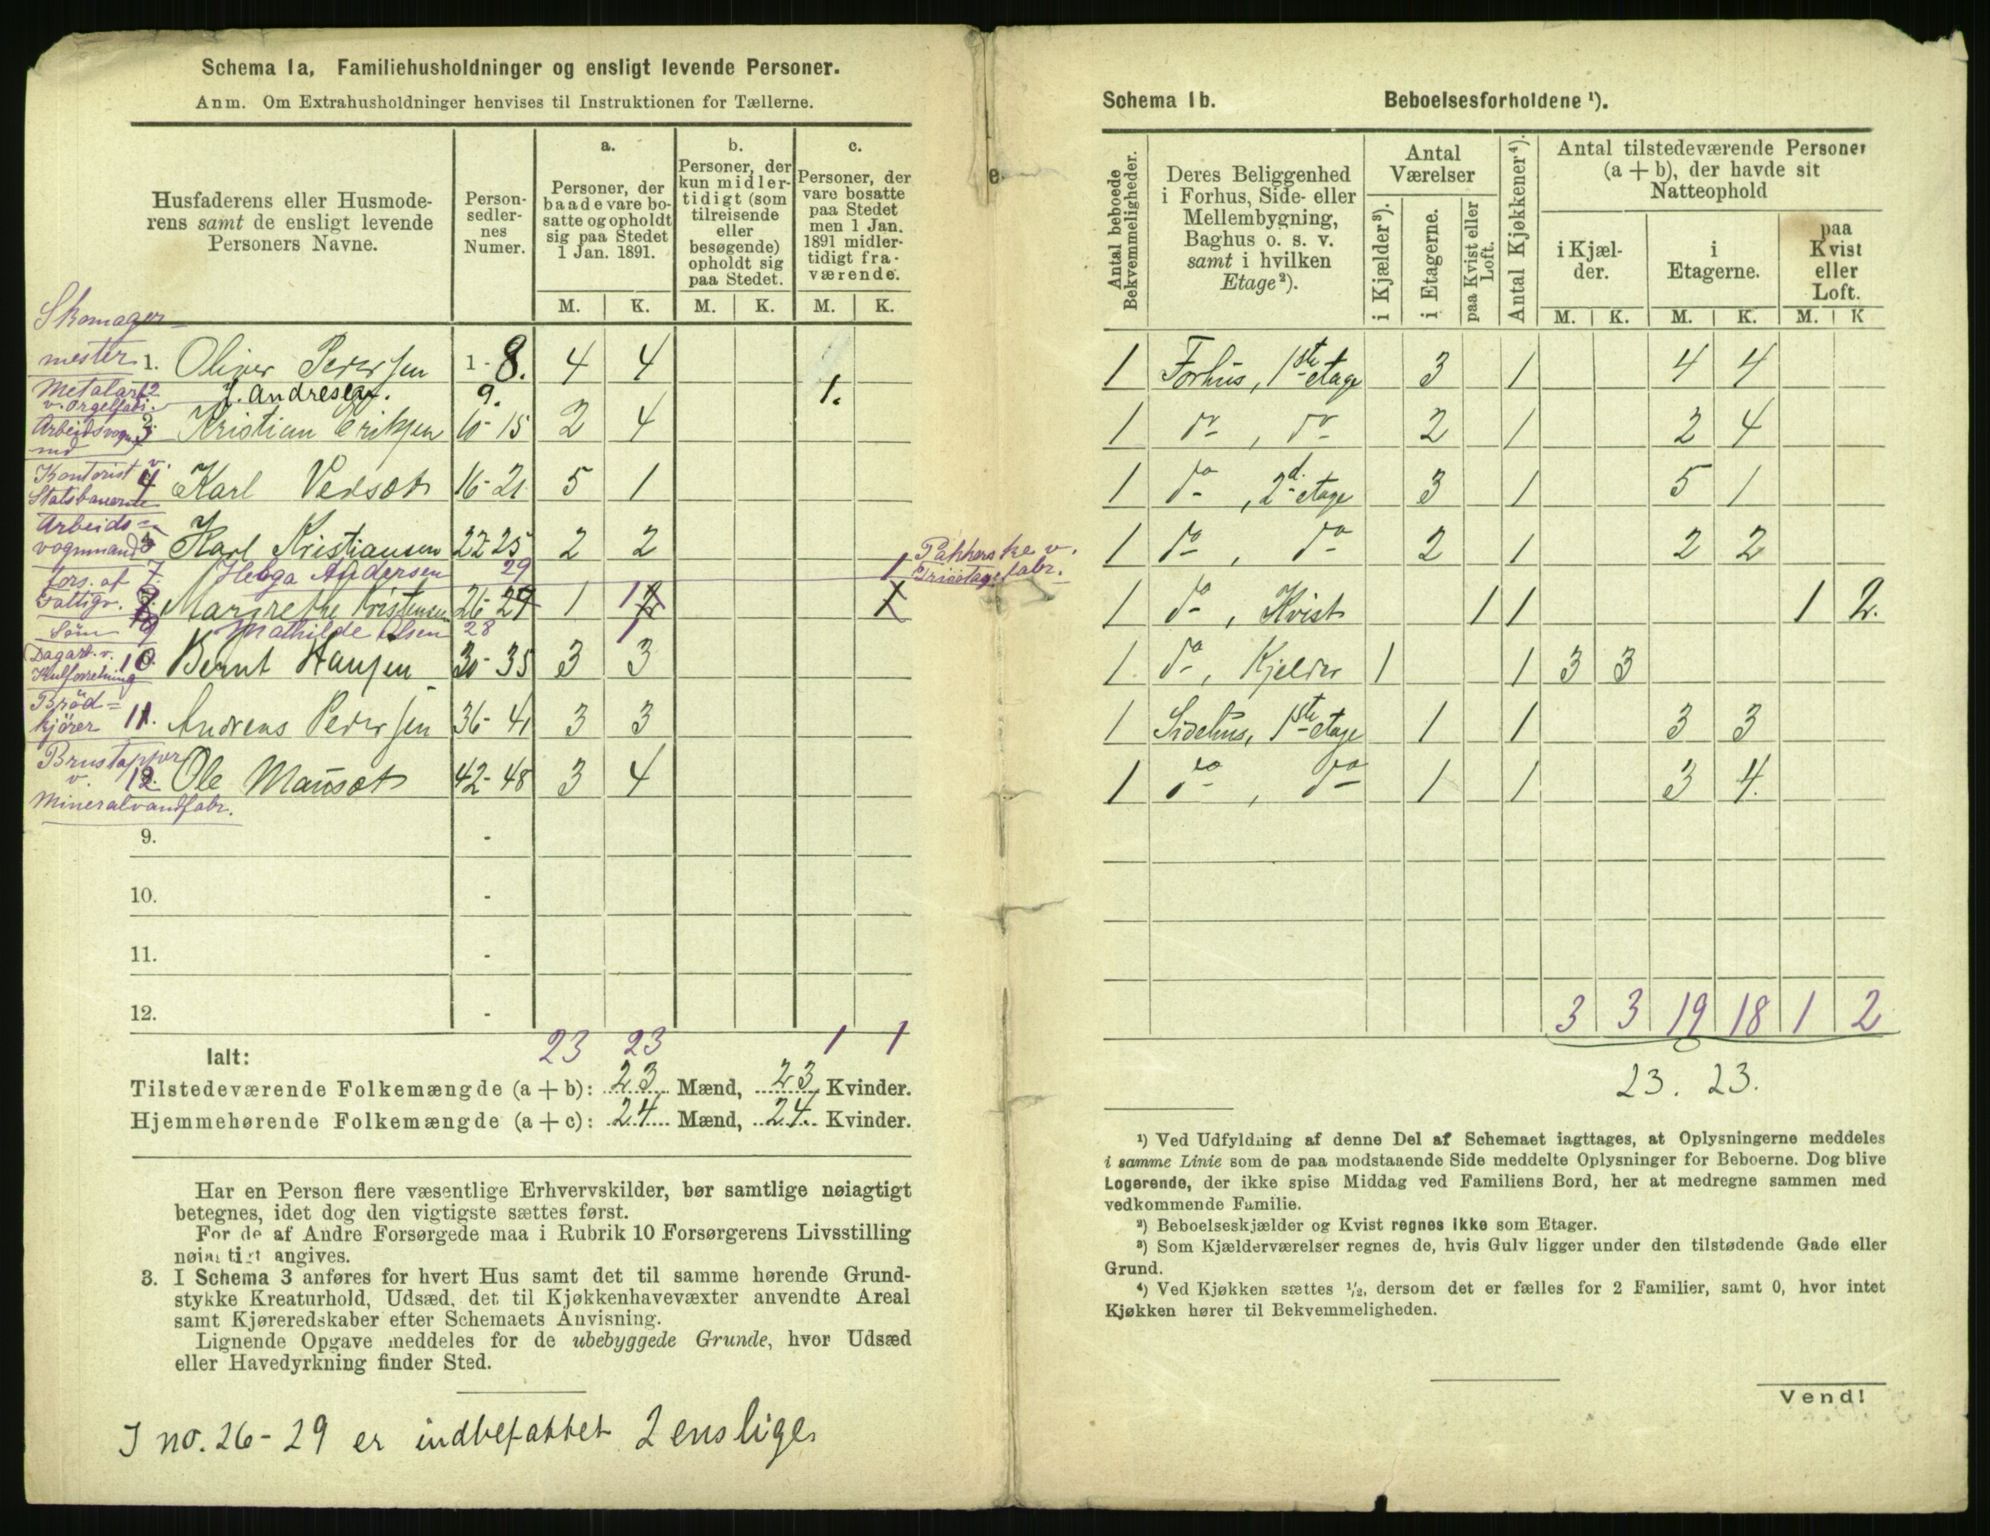 Schema 1a, Familiehusholdninger og ensligt levende Personer.
Anm. Om Extrahusholdninger henvises til Instruktionen for Tællerne.
Husfaderens eller Husmoderens samt de ensligt levende Personers Navne.
Personsedlernes Numer.
a. Personer, der baade vare bosatte og opholdt sig paa Stedet 1 Jan. 1891.
b. Personer, der kun midlertidigt (som tilreisende eller besøgende) opholdt sig paa Stedet.
c. Personer, der vare bosatte paa Stedet men 1 Jan. 1891 midlertidigt fraværende.
M. K. M. K. M. K.
Skomager=
mester 1. Oliver Pedersen 1-8. 4 4
Metalarb. 2
v. Orgelfabr. J. Andresen. 9. 1.
Arbeidsvogn
md 3 Kristian Eriksen 10-15 2 4
Kontorist v.
Statsbanerne 4 Karl Vedsæt 16-21 5 1
Arbeids=
vognmand 5 Karl Kristiansen 22-25 2 2
fors. af 7. Helga Andersen 29 1 Pakkerske v.
Tricotagefabr.
Fattigv. Margrethe Kristensen 26-27 1 1
Søm 9 Mathilde Olsen 28 1
Dagarb. v.
Kulforretning 10. Bernt Hansen 30-35 3 3
Brød=
kjører 11. Andreas Pedersen 36-41 3 3
Brustapper
v. 12. Ole Mausæt 42-48 3 4
Mineralvandfabr.
9. -
10. -
11. -
12. -
Ialt: 23 23 1 1
Tilstedeværende Folkemængde (a + b): 23 Mænd, 23 Kvinder.
Hjemmehørende Folkemængde (a + c): 24 Mænd, 24 Kvinder.
Har en Person flere væsentlige Erhvervskilder, bør samtlige nøiagtigt
betegnes, idet dog den vigtigste sættes først.
For de af Andre Forsørgede maa i Rubrik 10 Forsørgerens Livsstilling
nøiagtigt angives.
3. I Schema 3 anføres for hvert Hus samt det til samme hørende Grund-
stykke Kreaturhold, Udsæd, det til Kjøkkenhavevæxter anvendte Areal
samt Kjøreredskaber efter Schemaets Anvisning.
Lignende Opgave meddeles for de ubebyggede Grunde, hvor Udsæd
eller Havedyrkning finder Sted.
I no. 26-29 er indbefattet 2 enslige
Schema 1b. Beboelsesforholdene ¹).
Antal beboede Bekvemmeligheder.
Deres Beliggenhed i Forhus, Side- eller Mellembygning, Baghus o. s. v. samt i hvilken Etage²).
Antal Værelser
i Kjælder³).
i Etagerne.
paa Kvist eller Loft.
Antal Kjøkkener⁴).
Antal tilstedeværende Personer (a + b), der havde sit Natteophold
i Kjælder.
i Etagerne.
paa Kvist eller Loft.
M. K. M. K. M. K
1 Forhus, 1ste etage 3 1 4 4
1 do, do 2 1 2 4
1 do, 2d. etage 3 1 5 1
1 do, do 2 1 2 2
1 do, Kvist 1 1 1 2.
1 do, Kjelder 1 1 3 3
1 Sidehus, 1ste etage 1 1 3 3
1 do, do 1 1 3 4.
3 3 19 18 1 2
23. 23.
¹) Ved Udfyldning af denne Del af Schemaet iagttages, at Oplysningerne meddeles
i samme Linie som de paa modstaaende Side meddelte Oplysninger for Beboerne. Dog blive
Logerende, der ikke spise Middag ved Familiens Bord, her at medregne sammen med
vedkommende Familie.
²) Beboelseskjælder og Kvist regnes ikke som Etager.
³) Som Kjælderværelser regnes de, hvis Gulv ligger under den tilstødende Gade eller
Grund.
⁴) Ved Kjøkken sættes ½, dersom det er fælles for 2 Familier, samt 0, hvor intet
Kjøkken hører til Bekvemmeligheden.
Vend!